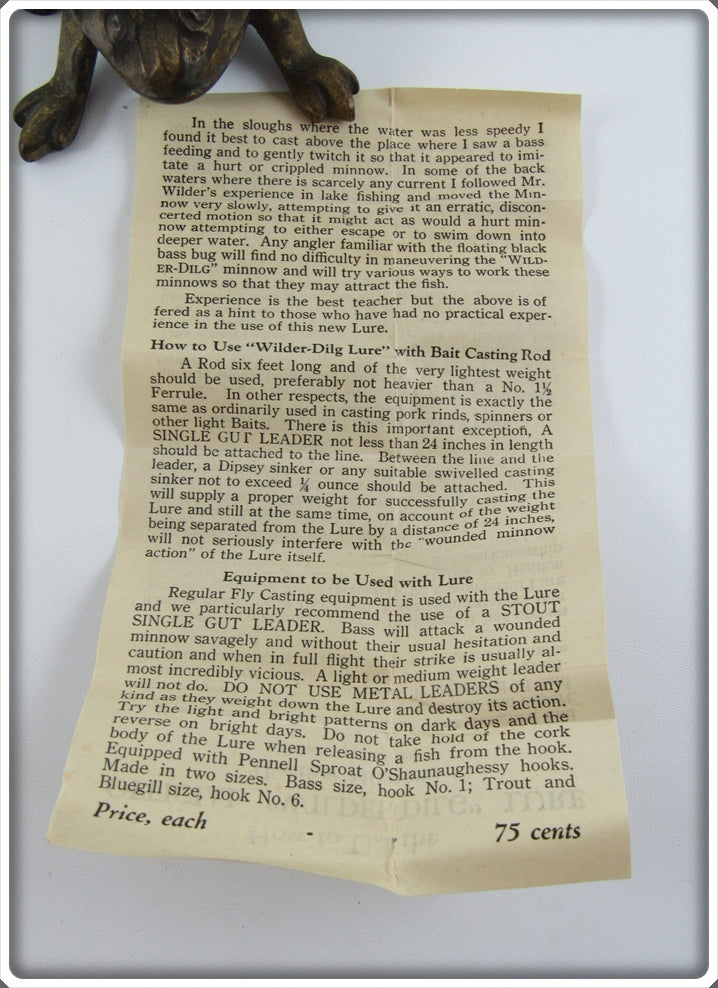 In the sloughs where the water was less speedy I
found it best to cast above the place where I saw a bass
feeding and to gently twitch it so that it appeared to imi-
tate a hurt or crippled minnow. In some of the back
waters where there is scarcely any current I followed Mr.
Wilder's experience in lake fishing and moved the Min-
now very slowly, attempting to give it an erratic, discon-
certed motion so that it might act as would a hurt min-
now attempting to either escape or to swim down into
deeper water. Any angler familiar with the floating black
bass bug will find no difficulty in maneuvering the "WILD-
ER-DILG" minnow and will try various ways to work these
minnows so that they may attract the fish.
Experience is the best teacher but the above is of
fered as a hint to those who have had no practical exper-
ience in the use of this new Lure.
How to Use "Wilder-Dilg Lure" with Bait Casting Rod
A Rod six feet long and of the very lightest weight
should be used, preferably not heavier than a No. 1½
Ferrule. In other respects, the equipment is exactly the
same as ordinarily used in casting pork rinds, spinners or
other light Baits. There is this important exception, A
SINGLE GUT LEADER not less than 24 inches in length
should be attached to the line. Between the line and the
leader, a Dipsey sinker or any suitable swivelled casting
sinker not to exceed ¼ ounce should be attached. This
will supply a proper weight for successfully casting the
Lure and still at the same time, on account of the weight
being separated from the Lure by a distance of 24 inches,
will not seriously interfere with the "wounded minnow
action" of the Lure itself.
Equipment to be Used with Lure
Regular Fly Casting equipment is used with the Lure
and we particularly recommend the use of a STOUT
SINGLE GUT LEADER. Bass will attack a wounded
minnow savagely and without their usual hesitation and
caution and when in full flight their strike is usually al-
most incredibly vicious. A light or medium weight leader
will not do. DO NOT USE METAL LEADERS of any
kind as they weight down the Lure and destroy its action.
Try the light and bright patterns on dark days and the
reverse on bright days. Do not take hold of the cork
body of the Lure when releasing a fish from the hook.
Equipped with Pennell Sproat O'Shaunaughessy hooks.
Made in two sizes. Bass size, hook No. 1; Trout and
Bluegill size, hook No. 6.
Price, each - 75 cents